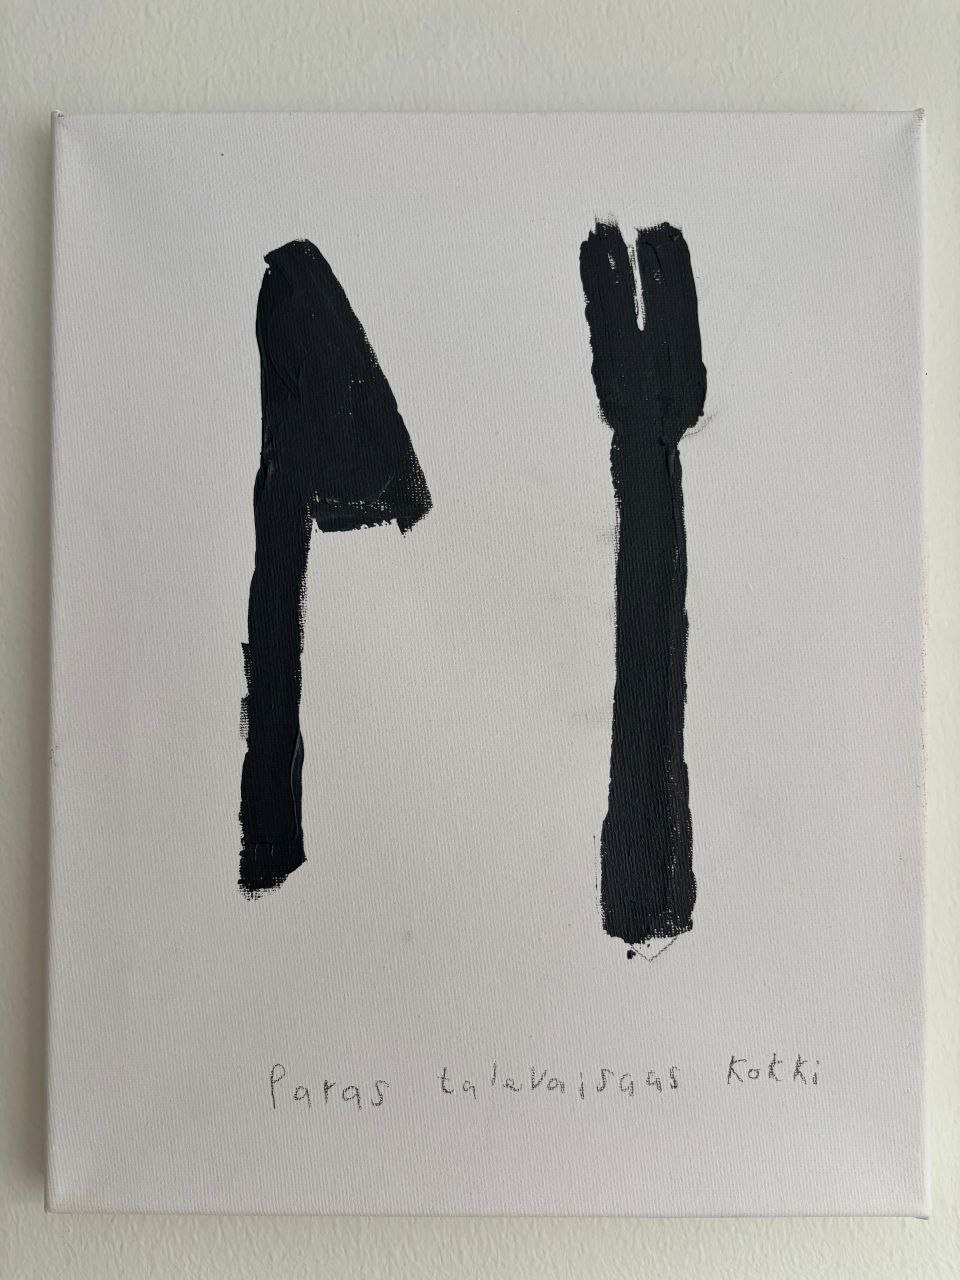 Paras talevaisaas kokki